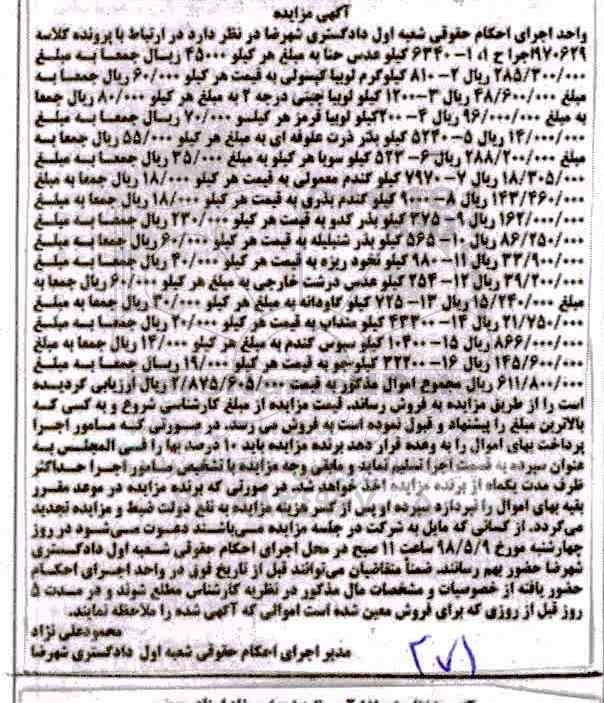 آگهی مزایده
واحد اجرای احکام حقوقی شعبه اول دادگستری شهرضا در نظر دارد در ارتباط با پرونده کلاسه
۹۷۰۶۲۹اجرا ح ۱، ۱- ۶۳۴۰ کیلو عدس حنا به مبلغ هر کیلو ۴۵۰۰۰ ریال جمعا به مبلغ
۲۸۵/۳۰۰/۰۰۰ ریال ۲- ۸۱۰ کیلوگرم لوبیا کپسولی به قیمت هر کیلو ۶۰/۰۰۰ ریال جمعا به
مبلغ ۴۸/۶۰۰/۰۰۰ ریال ۳- ۱۲۰۰ کیلو لوبیا چیتی درجه ۲ به مبلغ هر کیلو ۸۰/۰۰۰ ریال جمعا
به مبلغ ۹۶/۰۰۰/۰۰۰ ریال ۴- ۲۰۰کیلو لوبیا قرمز هر کیلو ۷۰/۰۰۰ ریال جمعا به مبلغ
۱۴/۰۰۰/۰۰۰ ریال ۵- ۵۲۴۰ کیلو بذر ذرت علوفه ای به مبلغ هر کیلو ۵۵/۰۰۰ ریال جمعا به
مبلغ ۲۸۸/۲۰۰/۰۰۰ ریال ۶- ۵۲۳ کیلو سویا هر کیلو به مبلغ ۳۵/۰۰۰ ریال جمعا به مبلغ
۱۸/۳۰۵/۰۰۰ ریال ۷- ۷۹۷۰ کیلو گندم معمولی به قیمت هر کیلو ۱۸/۰۰۰ ریال جمعا به مبلغ
۱۴۳/۴۶۰/۰۰۰ ریال ۸- ۹۰۰۰ کیلو گندم بذری به قیمت هر کیلو ۱۸/۰۰۰ ریال جمعا به مبلغ
۱۶۲/۰۰۰/۰۰۰ ریال ۹- ۳۷۵ کیلو بذر کدو به قیمت هر کیلو ۲۳۰/۰۰۰ ریال جمعا به مبلغ
۸۶/۲۵۰/۰۰۰ ریال ۱۰- ۵۶۵ کیلو بذر شنبلیله به قیمت هر کیلو ۶۰/۰۰۰ ریال جمعا به مبلغ
۳۳/۹۰۰/۰۰۰ ریال ۱۱- ۹۸۰ کیلو نخود ریزه به قیمت هر کیلو ۴۰/۰۰۰ ریال جمعا به مبلغ
۳۹/۲۰۰/۰۰۰ ریال ۱۲- ۲۵۴ کیلو عدس درشت خارجی به مبلغ هر کیلو ۶۰/۰۰۰ ریال جمعا به
مبلغ ۱۵/۲۴۰/۰۰۰ ریال ۱۳- ۷۲۵ کیلو گاودانه به مبلغ هر کیلو ۳۰/۰۰۰ ریال جمعا به مبلغ
۲۱/۷۵۰/۰۰۰ ریال ۱۴- ۴۳۳۰۰ کیلو منداب به قیمت هر کیلو ۲۰/۰۰۰ ریال جمعا به مبلغ
۸۶۶/۰۰۰/۰۰۰ ریال ۱۵- ۱۰۴۰۰ کیلو سبوس گندم به مبلغ هر کیلو ۱۴/۰۰۰ ریال جمعا به مبلغ
۱۴۵/۶۰۰/۰۰۰ ریال ۱۶- ۳۲۲۰۰ کیلو جو به قیمت هر کیلو ۱۹/۰۰۰ ریال جمعا به مبلغ
۶۱۱/۸۰۰/۰۰۰ ریال مجموع اموال مذکور به قیمت ۲/۸۷۵/۶۰۵/۰۰۰ ریال ارزیابی گردیده
است را از طریق مزایده به فروش رساند. قیمت مزایده از مبلغ کارشناسی شروع و به کسی که
بالاترین مبلغ را پیشنهاد و قبول نموده است به فروش می رسد. در صورتی که مامور اجرا
پرداخت بهای اموال را به وعده قرار دهد برنده مزایده باید ۱۰ درصد بها را فی المجلس به
عنوان سپرده به قسمت اجرا تسلیم نماید و مابقی وجه مزایده با تشخیص مامور اجرا حداکثر
ظرف مدت یکماه از برنده مزایده اخذ خواهد شد. در صورتی که برنده مزایده در موعد مقرر
بقیه بهای اموال را نپردازد سپرده او پس از کسر هزینه مزایده به نفع دولت ضبط و مزایده تجدید
می‌گردد. از کسانی که مایل به شرکت در جلسه مزایده می‌باشند دعوت می‌شود در روز
چهارشنبه مورخ ۹۸/۵/۹ ساعت ۱۱ صبح در محل اجرای احکام حقوقی شعبه اول دادگستری
شهرضا حضور بهم رسانند. ضمناً متقاضیان می‌توانند قبل از تاریخ فوق در واحد اجرای احکام
حضور یافته از خصوصیات و مشخصات مال مذکور در نظریه کارشناسی مطلع شوند و در مدت ۵
روز قبل از روزی که برای فروش معین شده است اموالی که آگهی شده را ملاحظه نمایند.
محمودعلی نژاد
مدیر اجرای احکام حقوقی شعبه اول دادگستری شهرضا
(۲۷)